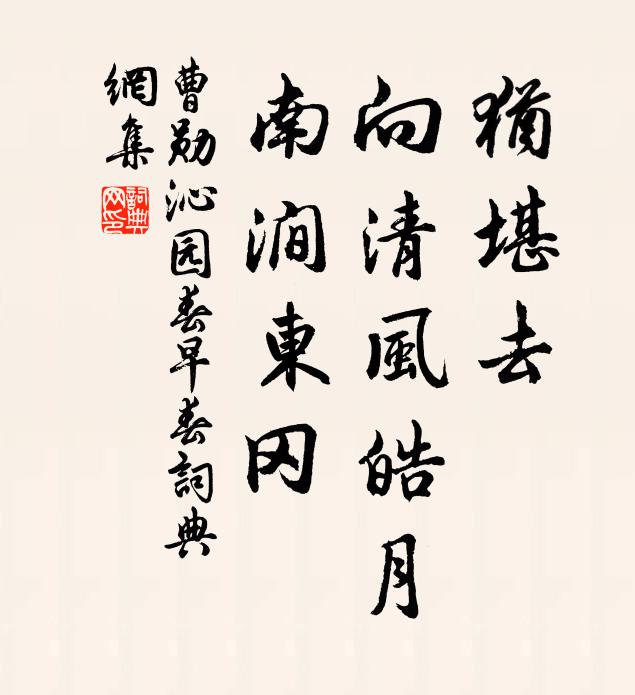 猶堪去
向清風皓月
南澗東冈
曹勋沁园春早春詞典
網集
詞典
网印